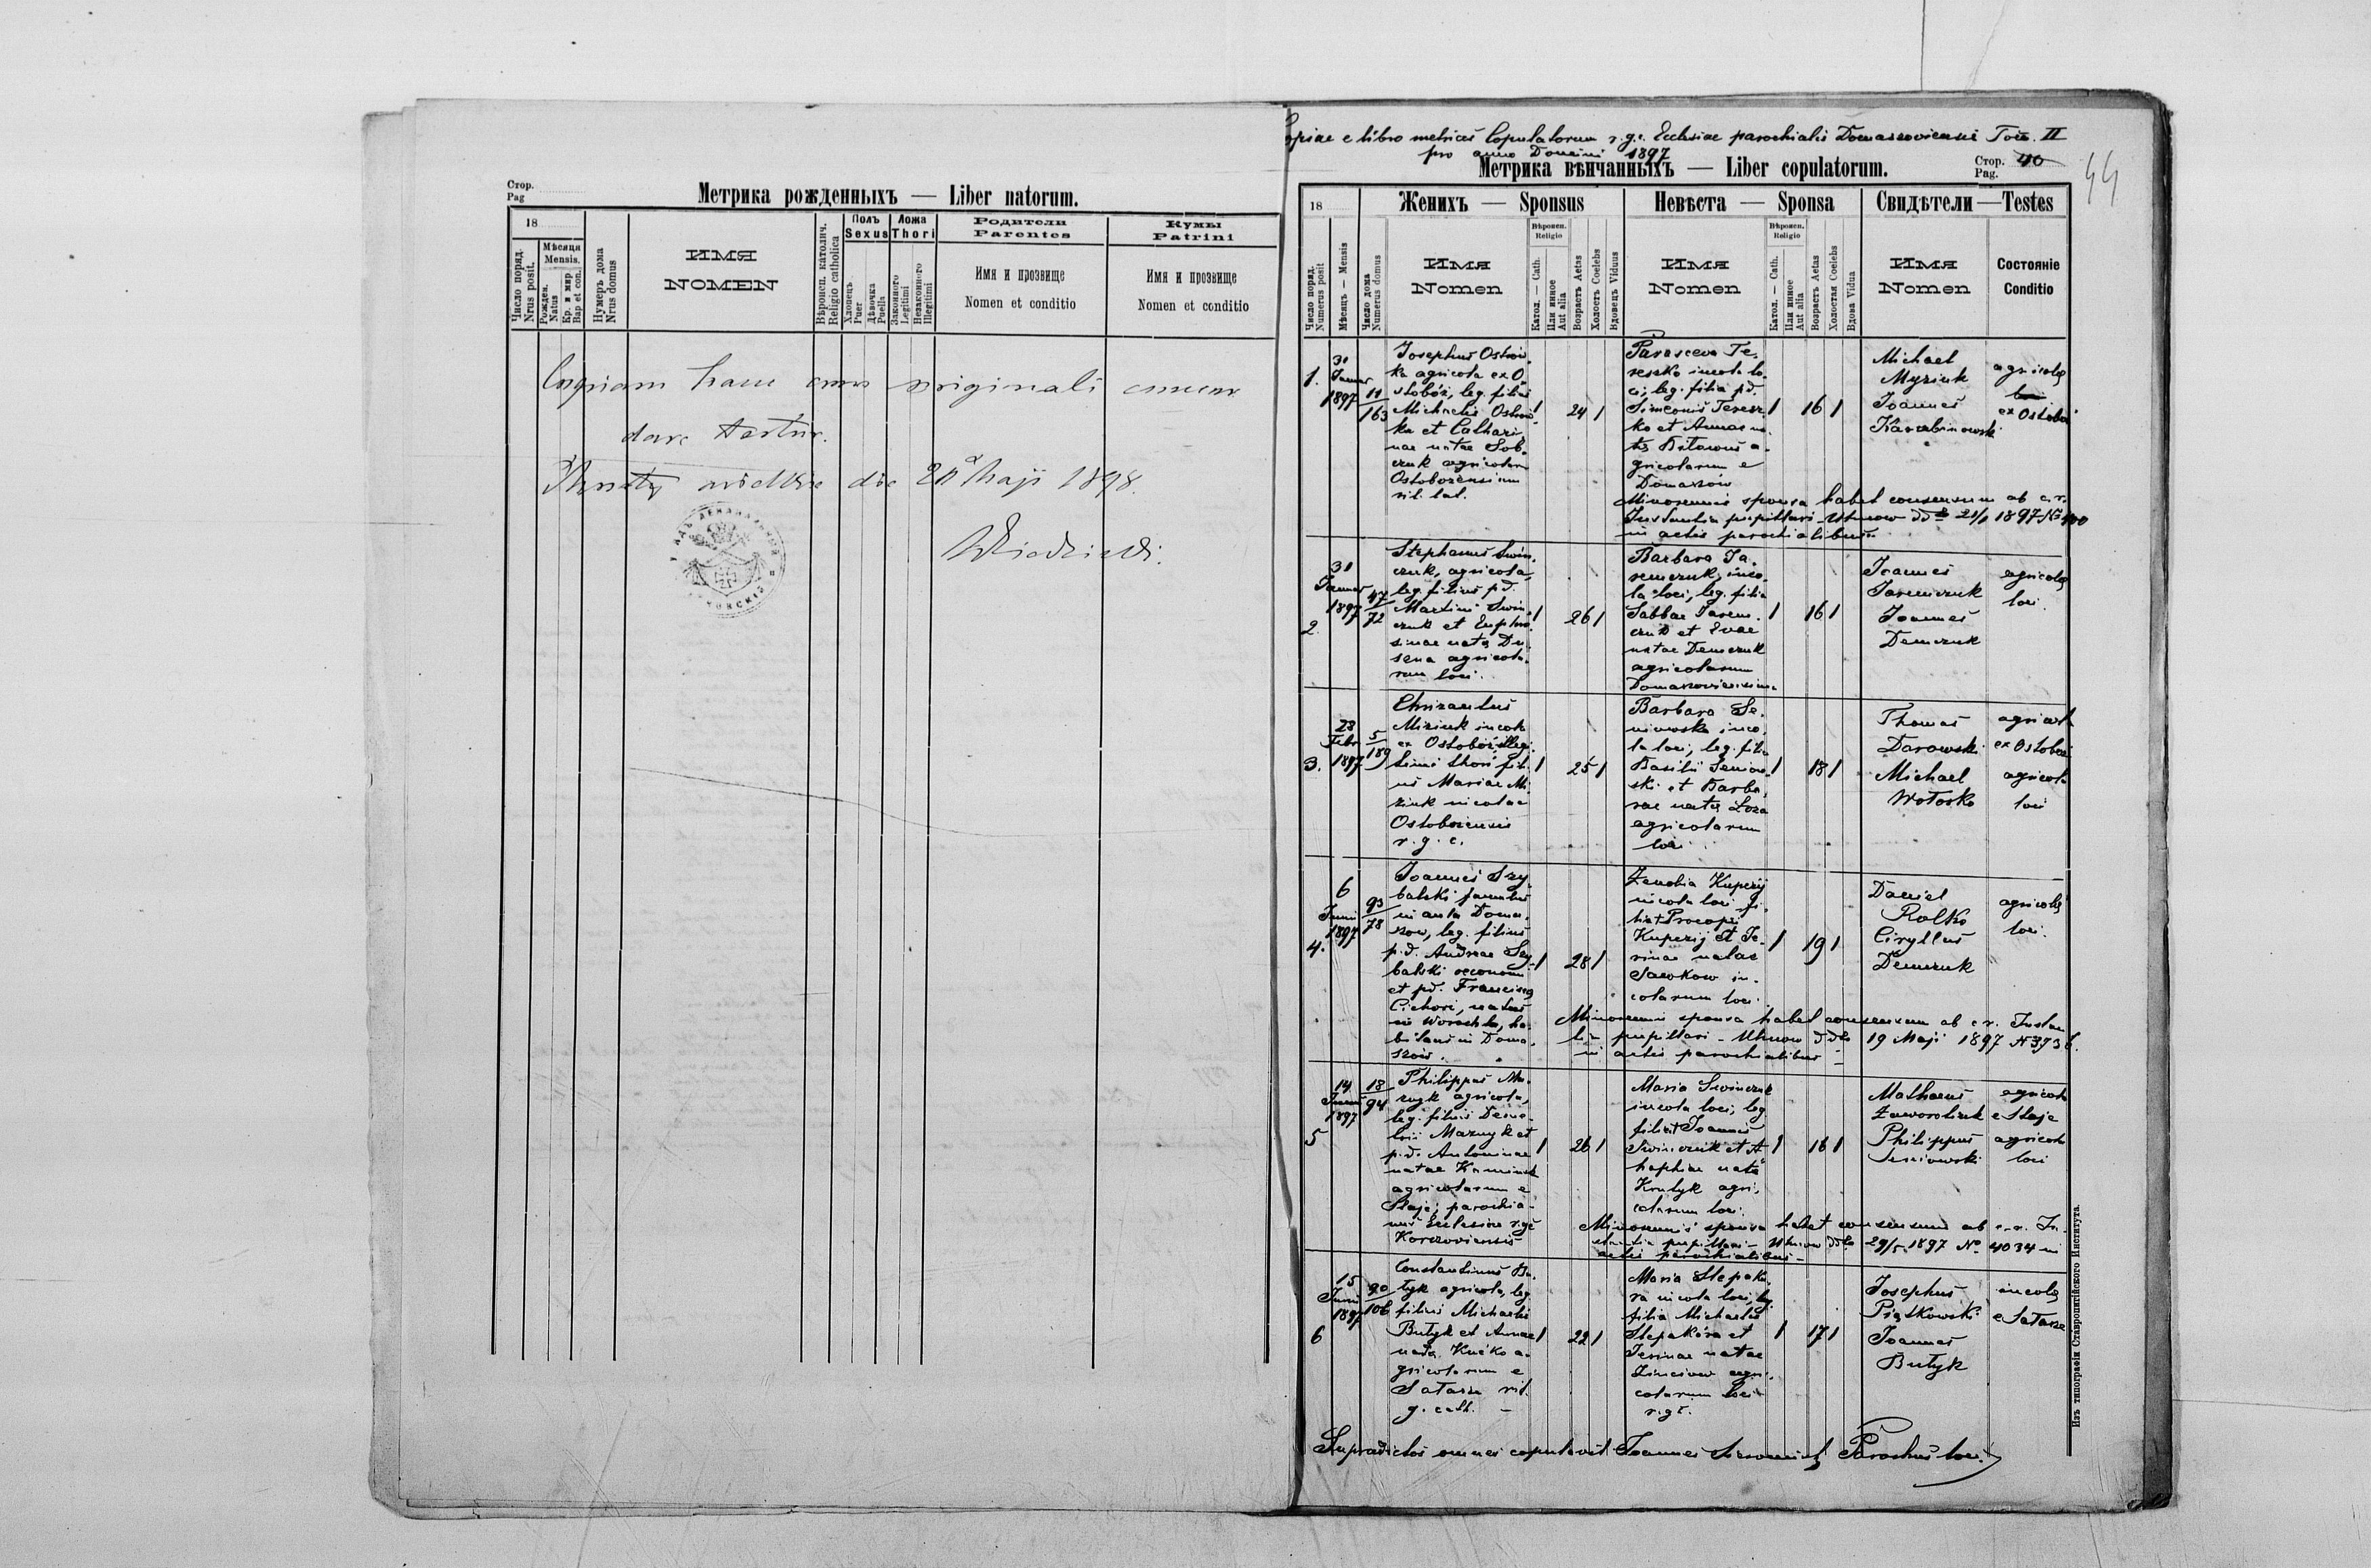 Стор.
Pag
Метрика рожденныхъ — Liber natorum.
18
Число поряд.
Nrus posit.
Мѣсяця
Mensis.
Рожден.
Natus
Кр. и мир
Bap et con.
Нумеръ дома
Nrus domus
ИМЯ
NOMEN
Вѣроисп. католич.
Religio catholica
Полъ
Sexus
Хлопецъ
Puer
Дѣвочка
Puella
Ложа
Thori
Законного
Legitimi
Незаконного
Illegitimi
Родители
Parentes
Имя и прозвище
Nomen et conditio
Кумы
Patrini
Имя и прозвище
Nomen et conditio
Copiam hanc cum originali concor
dare testor.
die 20 Maji 1898.
Copiae e libro metrices Copulatorum r.g.c. Ecclesiae parochialis Domaszoviensis Tom. II
pro anno Domini 1897
Метрика вѣнчанныхъ — Liber copulatorum.
Стор.
Pag.
40
44
18
Число поряд.
Numerus posit
Мѣсяцъ — Mensis
Число дома
Numerus domus
Женихъ — Sponsus
ИМЯ
Nomen
Вѣроисп.
Religio
Катол. — Cath.
Или инное
Aut alia
Возрастъ Aetas
Холостъ Coelebs
Вдовецъ Viduus
Невѣста — Sponsa
ИМЯ
Nomen
Вѣроисп.
Religio
Катол. — Cath.
Или инное
Aut alia
Возрастъ Aetas
Холостая Coelebs
Вдова Vidua
Свидѣтели — Testes
ИМЯ
Nomen
Состояніе
Conditio
1.
31
Januar
1897
11
163
Josephus Ostrow
ka agricola ex O
stobóż, leg. filius
Michaelis Ostrow
ka et Cathari
nae natae Sob
czuk agricolarum
Ostobozensium
rit. lat.
1 24 1
Parasceva Te
reszko incola lo
ci, leg. filia p.d.
Simeonis Teresz
ko et Annae na
tae
gricolarum e
Domaszow
1 16 1
Michael
Myziuk
Joannes
Karabinowski
agricolae
ex Ostoboż
Minorennis sponsa habet consensum ab c.r.
Instantia pupillari Uhnow ddto 21/1 1897 №
in actis parochialibus
2.
31
Januar
1897
47
72
Stephanus Swin
czuk, agricola,
leg. filius p.d.
Martini Swin
czuk et Euphro
sinae natae
agricola
rum loci.
1 26 1
Barbara Ja
remczuk, inco
la loci, leg. filia
Sabbae Jarem
czuk et Evae
natae Demczuk
agricolarum
Domaszoviensium
1 16 1
Joannes
Jaremczuk
Joannes
Demczuk
agricolae
loci.
3.
28
Febr
1897
5
189
Chrizantus
Miziuk incola
ex Ostoboż, illegi
timi thori fili
us Mariae Mi
ziuk incolae
Ostobozensis
r.g.c.
1 25 1
Barbara Se
niowska inco
la loci, leg. filia
Basilii Seniow
ski et Barba
rae natae Loza
agricolarum
loci
1 18 1
Thomas
Darowski
Michael
Wołosko
agricola
ex Ostoboż
agricola
loci
4.
6
Junii
1897
93
78
Joannes Szy
balski famulus
in aula Doma
szow, leg. filius
p.d. Andreae Szy
balski oeconomi
et p.d. Franciscae
Cichori, natus
in Worochta, ha
bitans in Doma
szow.
1 28 1
Zenobia Kuperij
incola loci fi
lia Procopii
Kuperij et Ire
rinae natae
incolarum loci.
1 19 1
Daniel
Rolko
Cyryllus
Demczuk
agricolae
loci.
Minorennis sponsa habet consensum ab c.r. Instan
tia pupillari Uhnow ddto 19 Maji 1897 N 3736.
in actis parochialibus
5
14
Junii
1897
18
94
Philippus Ma
zuryk agricola,
leg. filius Deme
trii Mazuryk et
p.d. Antoninae
natae Kaminsk
agricolarum e
Staje, parochia
nus Ecclesiae r.g.c
Korczoviensis
1 26 1
Maria Swinczuk
incola loci, leg
filia Joannis
Swinczuk et A
haphiae natae
Krutyk agri
colarum loci.
1 16 1
Mathaeus
Zaworotiuk
Philippus
Seniowski
agricola
e Staje
agricola
loci
Minorennis sponsa habet consensum ab c.r. In
stantia pupillari Uhnow ddto 29/5 1897 No 4034 in
actis parochialibus
6
15
Junii
1897
90
106
Constantinus Bu
tyk agricola, leg
filius Michaelis
Butyk et Annae
natae Kućko a
gricolarum e
Sałasze rit.
g. cath.
1 22 1
Maria Slepako
ra incola loci, leg
filia Michaelis
Slepakóra et
Irinae natae
agri
colarum loci
r.g.c.
1 17 1
Josephus
Piątkowski
Joannes
Butyk
incolae
e Sałasze
Supradictos omnes copulavit Joannes Parochus loci.
Изъ типографіи Ставропигійского Института.